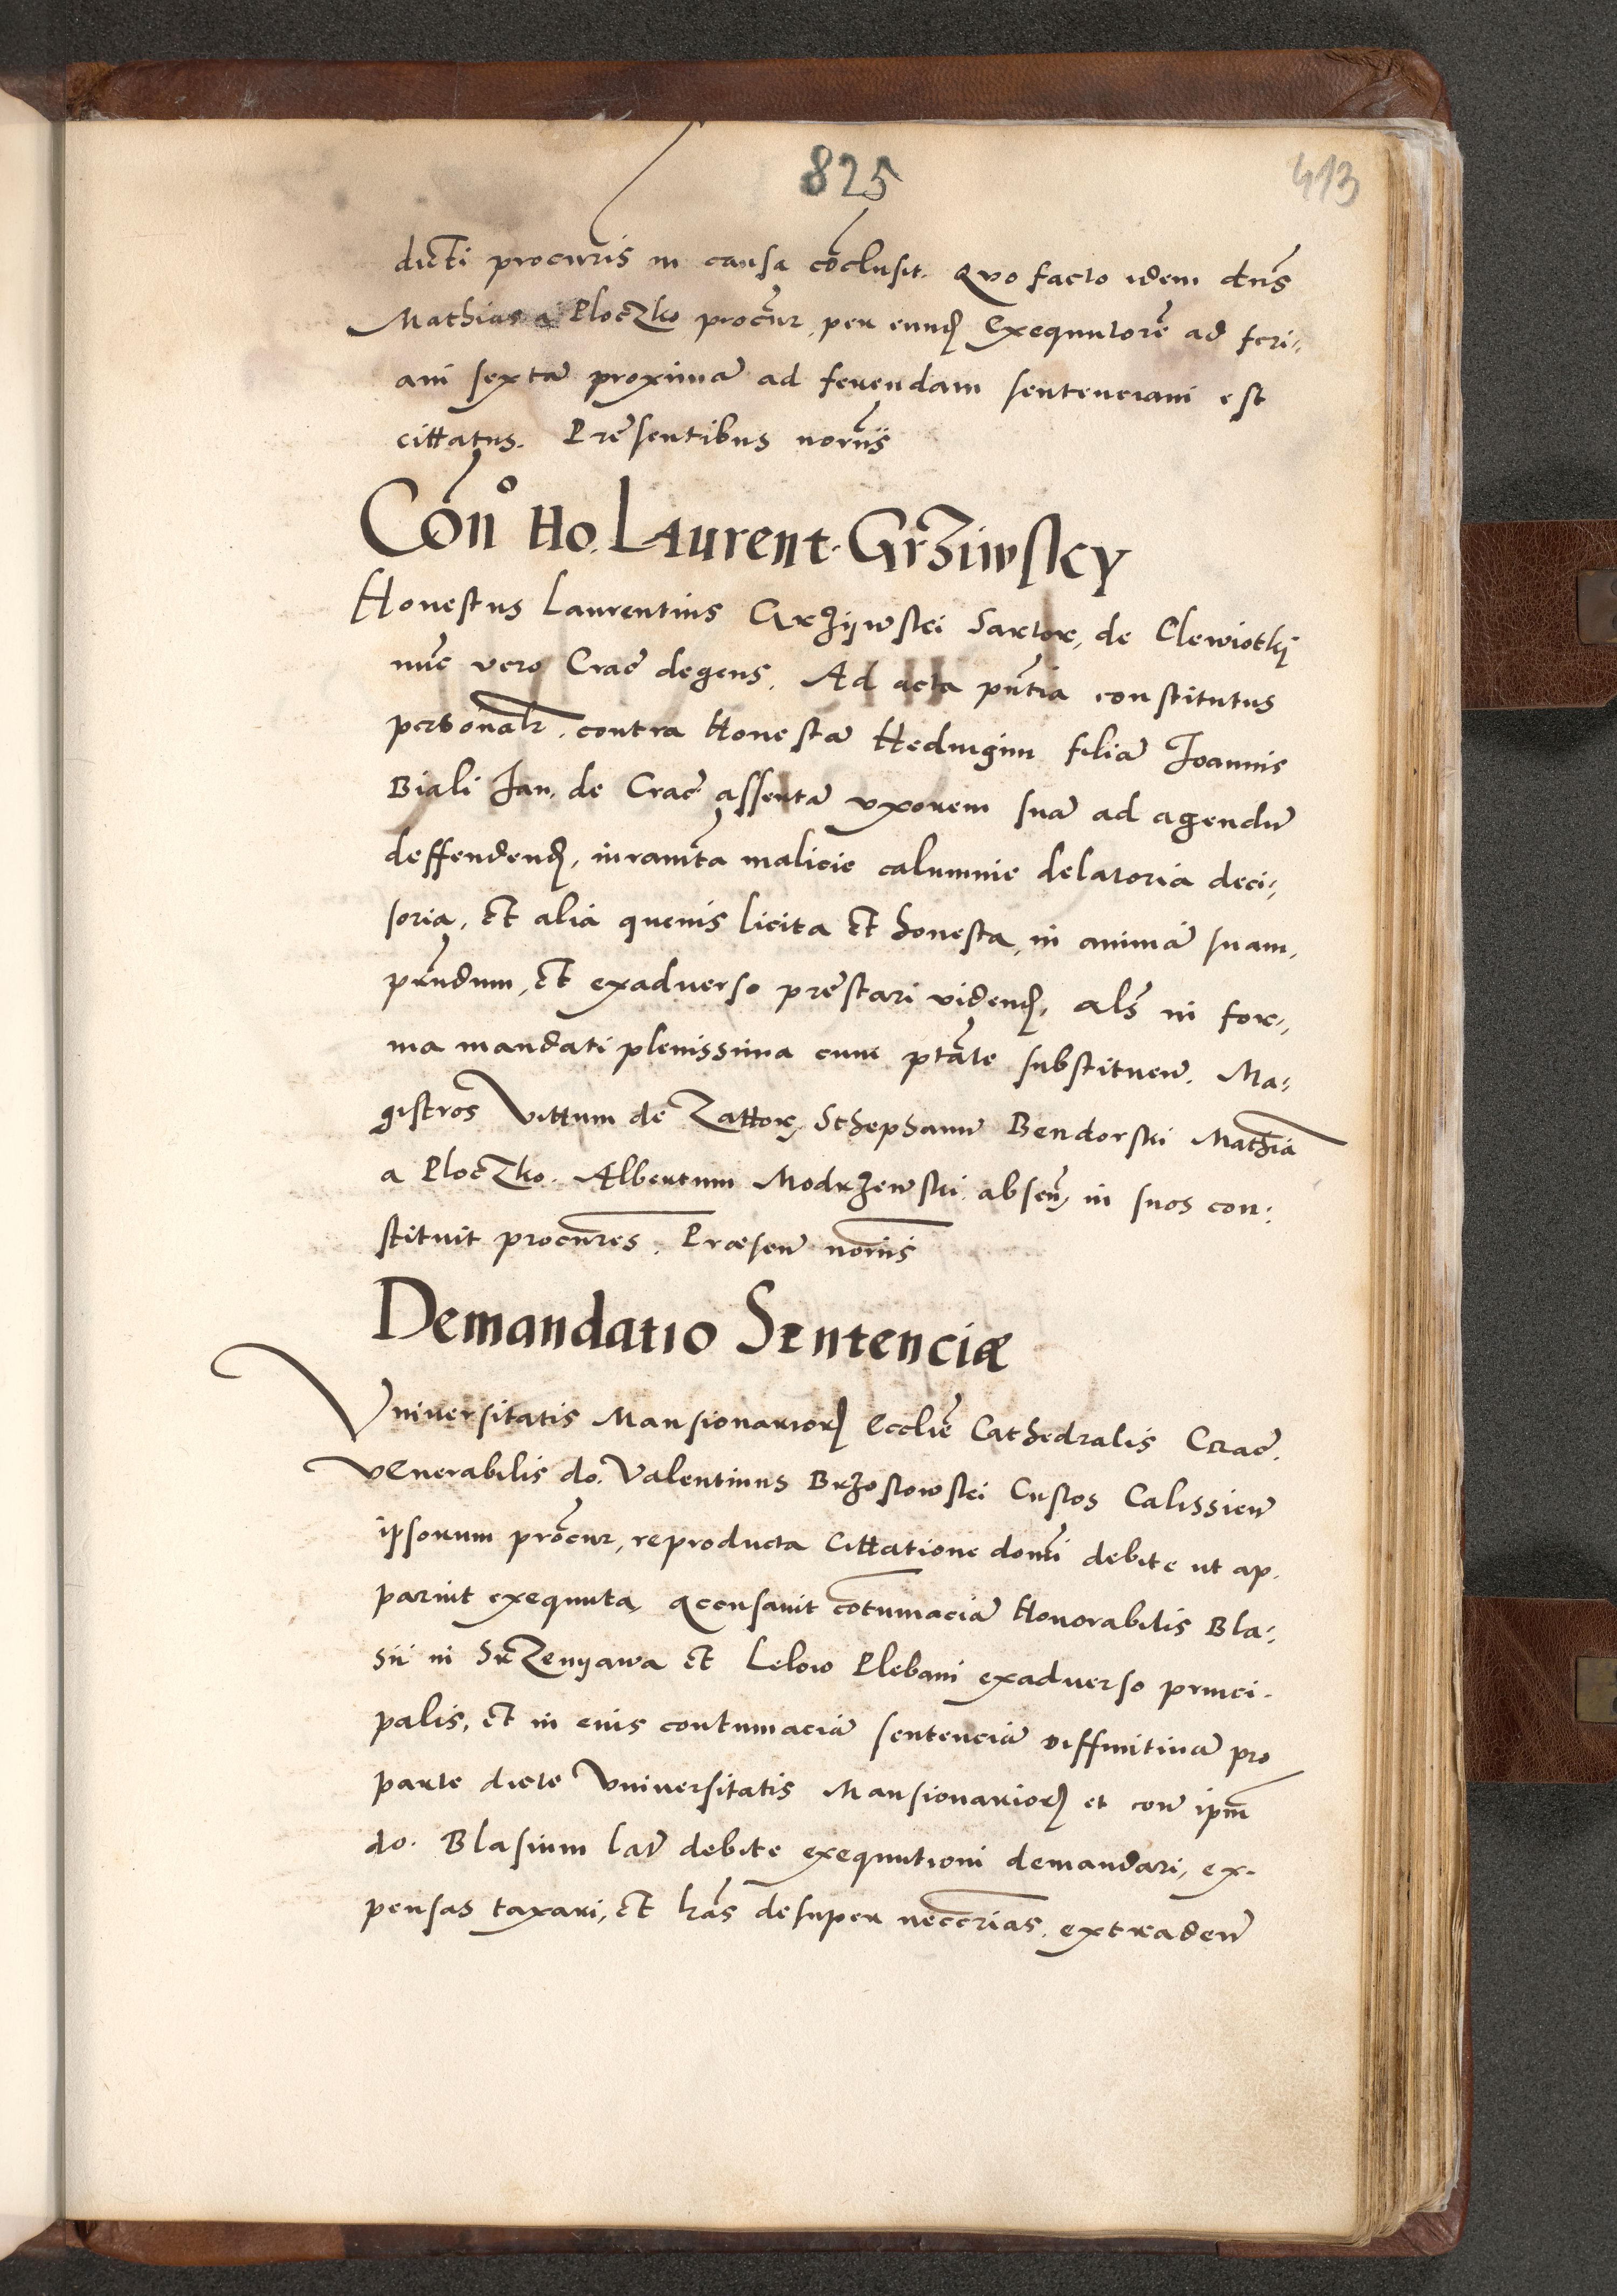 825
413
dicti procuris in causa cōclusit. Quo facto idem dns
Mathias a Ploczko procur, per eund Exequutorē ad feri-
am sextā proximā ad ferendam sentenciam est
cittatus. Prēsentibus norijs
Con° Ho. Laurent. Grziwsky
Honestus Laurentius Grzijwski Sartor, de Clewiotki
nūc vero Crac̄ degens. Ad acta pn̄tia constitutus
personalr. contra Honestā Hedwigim filiā Joannis
Biali Jan. de Crac̄ assertā vxorem suā ad agendū
deffendend, iuramta malicie calumnie delatoria deci-
soria, et alia quevis licita et honesta, in animā suam,
prn̄dum, et exadverso prēstari vidend, als in for-
ma mandati plenissima cum ptāte substituen̄. Ma-
gistros Vittum de Zattor, Schephanū Bendorski Mathiā
a Ploczko. Albertum Modrzewski absen̄, in suos con-
stituit procures. Præsen̄ noriis
Demandatio Sentenciæ
Vniversitatis Mansionarior Eccliē Cathedralis Crac̄.
Venerabilis do. Valentinus Brzostowski Custos Calissien̄
ipsorum procur, reproducta Cittatione domi debite ut ap-
paruit exequuta, accusavit cōtumaciā Honorabilis Bla-
sii in Srzenyawa et Lelow Plebani exadverso princi-
palis, et in eius contumaciā sentenciā diffinitivā pro
parte dicte Vniversitatis Mansionarior et con̄ ipm
do. Blasium latā debite exequutioni demandari, ex-
pensas taxari, et lrās desuper neccrias. extraden̄